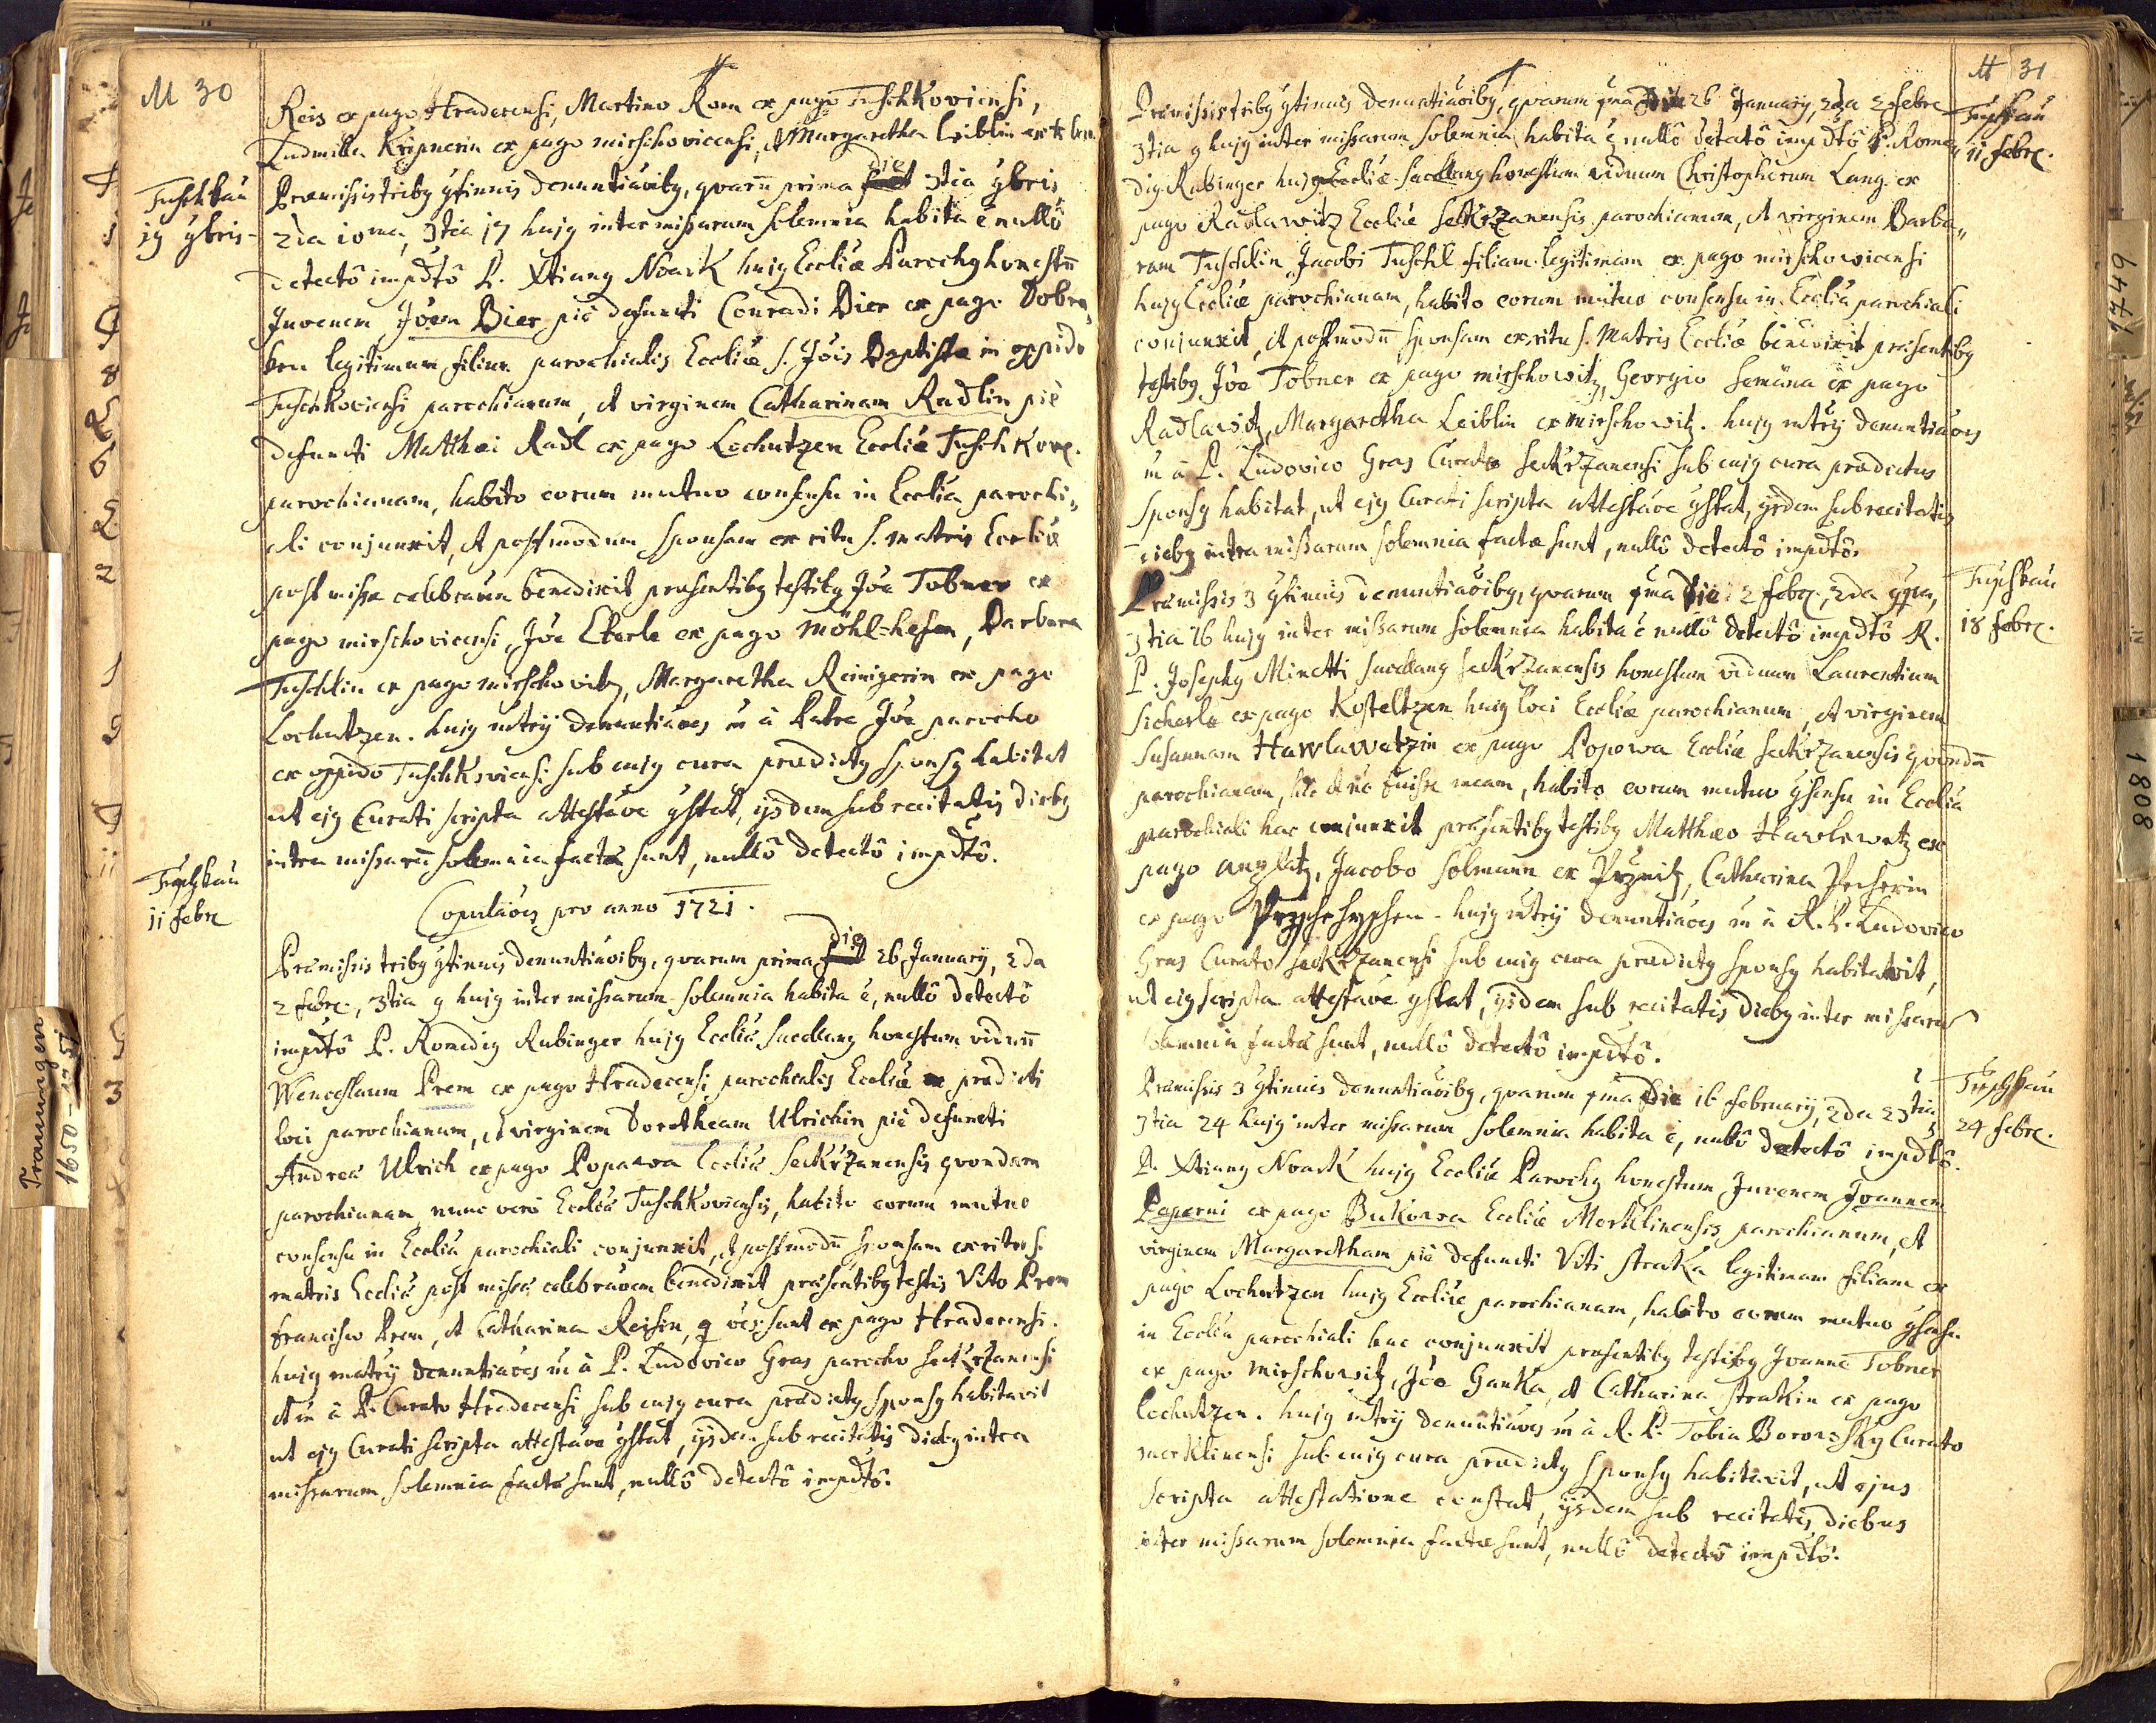 M 30
Reis ex pago Hradecensi, Martino Rom ex pago Tuschkoviensi,
Ludmilla Kripnerin ex pago mirschovicensi, et Margaretha Leiblin
Tuschkau
19 9bris
Praemissis tribg 9tinuis denuntiaoibg, quarū prima die 3tia 9bris
2da 10ma, 3tia 17 hujg inter missarum solemnia habita ē nullô
detectô impdtô P. Xtiang Noack hujg Eccliae Parochg honestū
Juvenem Jōem Bier piè defuncti Conradi Bier ex pago Dobra„
ken legitimum filium parochialis Eccliae S. Jōis Baptistae in oppido
Tuschkoviensi parochianum, et virginem Catharinam Radlin piè
defuncti Matthaei Radl ex pago Lochutzen Eccliae Tuschkov.
parochianam, habito eorum mutuo consensu in Ecclia parochi„
ali conjunxit, et postmodum sponsam ex ritu S. Matris Eccliae
post missae celebraoem benedixit praesentibg testibg Jōe Tobner ex
pago mirschovicensi, Jōe Eberle ex pago Möhl-hefen, Barbara
Tuschlin ex pago mirschovitz, Margaretha Reinigerin ex pago
Lochutzen. hujg mtrij denuntiaoes ut à Patre Jōe parocho
ex oppido Tuschkoviensi sub cujg cura praedictg sponsg habitat
ut ejg Curati scripta attestaōe 9stat, ijsdem sub recitatis diebg
intra missarū solemnia factae sunt, nullô detectô impdtô.
Tuschkau
11 febr
Copulaōes pro anno 1721.
Praemissis tribg 9tinuis denuntiaoibg, quarum prima die 26 January, 2da
2 febr., 3tia 9 hujg inter missarum solemnia habita ē, nullô detectô
impdtô P. Romedig Rubinger hujg Eccliae Sacellang honestum viduū
Wenceslaum Prem ex pago Hradecensi parochialis Eccliae praedicti
loci parochianum, et virginem Dorotheam Ulrichin piè defuncti
Andreae Ulrich ex pago Popawa Eccliae Seckrzanensis quondam
parochianam nunc verò Eccliae Tuschkoviensis, habito eorum mutuo
consensu in Ecclia parochiali conjunxit, et postmodū sponsam ex ritu S.
matris Eccliae post missae celebraōem benedixit praesentibg testis Vito Prem
Francisco Prem, et Catharina Reisin, q̄ oēs sunt ex pago Hradecensi.
hujg matrij denuntiaōes ut à P. Ludovico Gras parocho Seckrzanensi
et ut à P. Curato Hradecensi sub cujg cura praedictg sponsg habitavit
ut ejg Curati scripta attestaōe 9stat, ijsdem sub recitatis diebg intra
missarum solemnia factae sunt, nullô detectô impdtô.
M 31
Tuschkau
11 febr.
Praemissis tribg 9tinuis denuntiaoibg, quarum pma die 26 January, 2da 2 febr
3tia 9 hujg inter missarum solemnia habita ē nullô detectô impdtô P. Rome„
dig Rubinger hujg Eccliae Sacellang honestum viduum Christopherum Lang ex
pago Radlawitz Eccliae Seckrzanensis parochianum, et virginem Barba„
ram Tuschlin Jacobi Tuschl filiam legitimam ex pago mirschowicensi
hujg Eccliae parochianam, habito eorum mutuo consensu in Ecclia parochiali
conjunxit, et postmodū sponsam ex ritu S. Matris Eccliae benedixit praesentibg
testibg Jōe Tobner ex pago mirschowitz, Georgio Semäna ex pago
Radlawitz, Margaretha Leiblin ex mirschowitz. hujg mtrij denuntiaōes
ut à P. Ludovico Gras Curato Seckrzanensi sub cujg cura praedictus
Sponsg habitat, ut ejg Curati scripta attestaōe 9stat, ijsdem sub recitatis
diebg intra missarum solemnia factae sunt, nullô detectô impdtô.
Tuschkau
18 febr.
Praemissis 3 9tinuis denuntiaoibg, quarum pma die 2 febr., 2da 9na,
3tia 16 hujg inter missarum solemnia habita ē nullô detectô impdtô R.
P. Josephg Minetti Sacellang Seckrzanensis honestum viduum Laurentium
Sicherle ex pago Kosteltzen hujg loci Eccliae parochianum, et virginem
Susannam Hawlawetzin ex pago Popowa Eccliae Seckrzanensis quondū
parochianam, habito eorum mutuo 9sensu in Ecclia
parochiali hac conjunxit praesentibg testibg Matthaeo Hawlawetz ex
pago Jacobo Solmann ex Catharina Pecherin
ex pago hujg mtrij denuntiaōes ut à R. P. Ludovico
Gras Curato Seckrzanensi sub cujg cura praedictg sponsg habitavit,
ut ejg scripta attestaōe 9stat, ijsdem sub recitatis diebg inter missarum
solemnia factae sunt, nullô detectô impdtô.
Tuschkau
24 febr.
Praemissis 3 9tinuis denuntiaoibg, quarum pma die 16 february, 2da 23tia,
3tia 24 hujg inter missarum solemnia habita ē, nullô detectô impdtô.
P. Xtiang Noack hujg Eccliae Parochg honestum Juvenem Joannem
Paperni ex pago Bukowa Eccliae Merklinensis parochianum, et
virginem Margaretham piè defuncti Viti Straka legitimam filiam ex
pago Lochutzen hujg Eccliae parochianam, habito eorum mutuo 9sensu
in Ecclia parochiali hac conjunxit praesentibg testibg Joanne Tobner
ex pago mirschowitz, Jōe Ganka, et Catharina Strakin ex pago
Lochutzen. hujg mtrij denuntiaōes ut à R. P. Tobia Borowsky Curato
merklinensi sub cujg cura praedictg sponsg habitavit, ut ejus
scripta attestatione constat, ijsdem sub recitatis diebus
inter missarum solemnia factae sunt, nullô detectô impdtô.
Trauungen
1650-1751
1749
1808